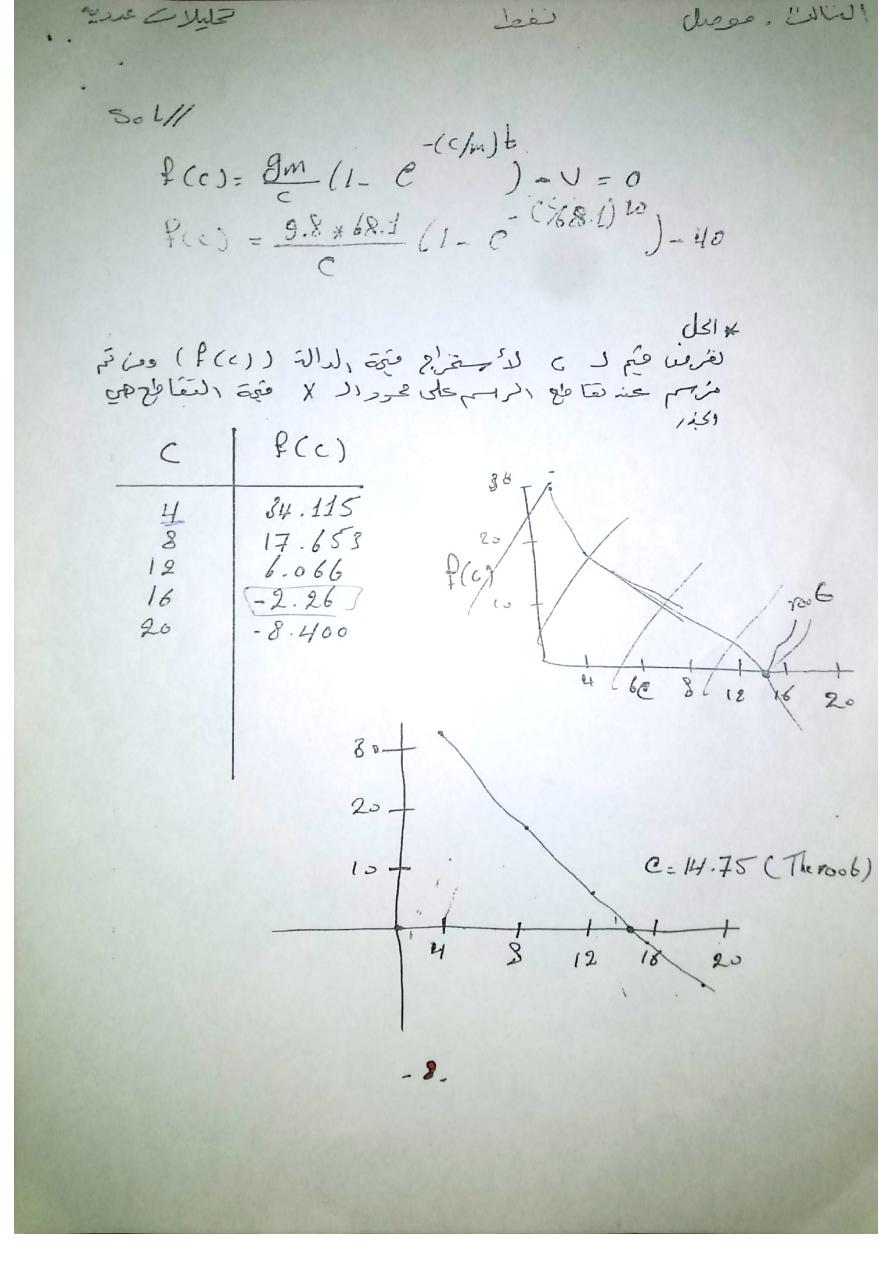 الثالث . موصل نفط تحليلات عددية
Sol//
f(c) = gm/c (1 - e^-(c/m)t) - v = 0
f(c) = 9.8 * 68.1/c (1 - e^-(c/68.1)10) - 40
* الحل
نفرض قيم لـ c لأستخراج قيمة الدالة (f(c)) ومن ثم
نرسم عند تقاطع الرسم على محور الـ X قيمة التقاطع هي
الجذر
C f(c)
4 34.115
8 17.653
12 6.066
16 -2.26
20 -8.400
30
20
f(c)
10
root
4 6c 8 12 16 20
30
20
10
C = 14.75 (The root)
4 8 12 16 20
- 8 -